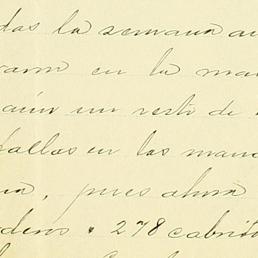 das la semana au
raron en la ma
aún un resto de
fallas en las mana
na, pues ahora
deros . 298 cabrit